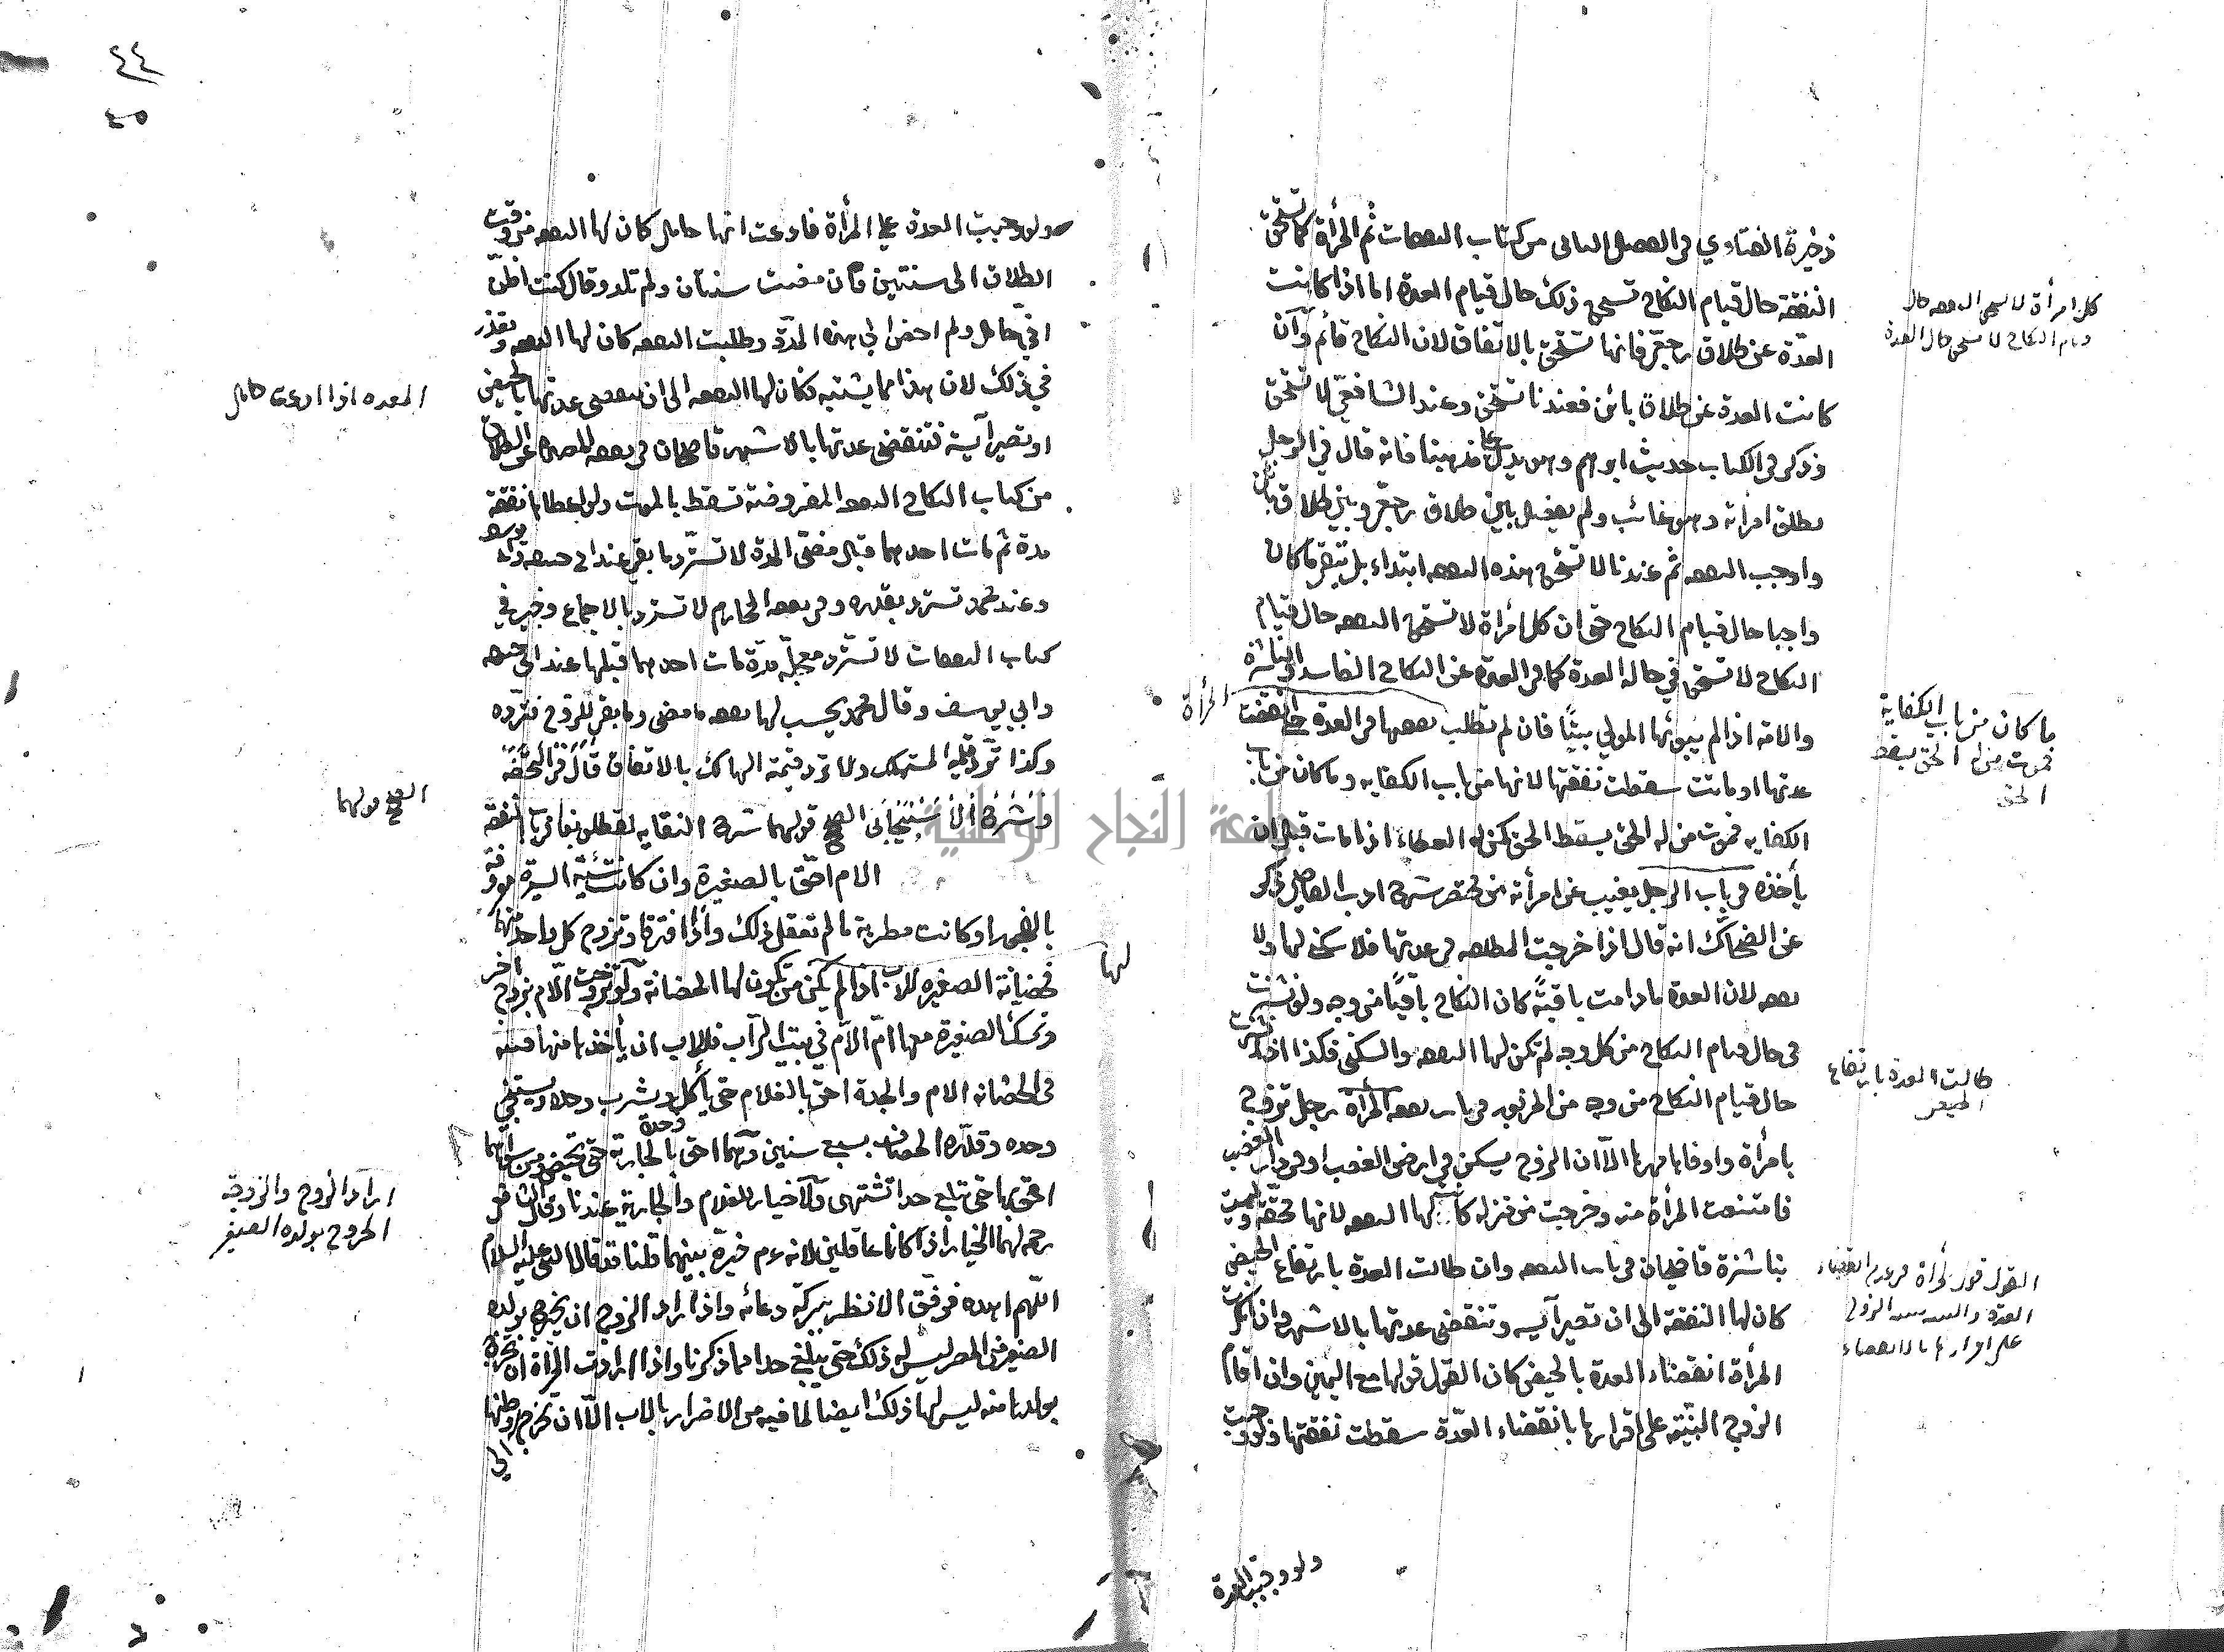 ذخيرة الفتاوي في الفصل الثاني من كتاب النفقات ثم المرأة كما تستحق
النفقة حال قيام النكاح تستحق ذلك حال قيام العدة اما اذا كانت
العدّة عن طلاق رجعي فانها تستحق بالاتفاق لان النكاح قائم وان
كانت العدة عن طلاق بائن فعندنا تستحق وعند الشافعي لا تستحق
وذكر في الكتاب حديث ابرهم وهو يدل على مذهبنا فانه قال في الرجل
يطلق امرأته وهو غائب ولم يفصل بين طلاق رجعي وبين طلاق بائن
واوجب النفقة ثم عندنا لا تستحق هذه النفقة ابتداء بل تبقى ما كان
واجبا حال قيام النكاح حتى ان كل امرأة لا تستحق النفقة حال قيام
النكاح لا تستحق في حالة العدة كما في العدة عن النكاح الفاسد والناشزة
والامة اذا لم يبوئها المولي بيتًا فان لم تطلب المرأة نفقتها في العدة حتى انقضت
عدتها او ماتت سقطت نفقتها لانها من باب الكفايه وما كان من باب
الكفايه فموت من له الحق يسقط الحق كمن له العطاء اذا مات قبل ان
يأخذه في باب الرجل يغيب عن امرأته من مختصر شرح ادب القاضي ذكر
عن الضحاك انه قال اذا خرجت المطلقه في عدتها فلا سكنى لها ولا
نفقه لان العدة مادامت باقيةً كان النكاح باقيًا من وجه ولو نشزت
في حال قيام النكاح من كل وجه لم تكن لها النفقه والسكنى فكذا اذا نشزت
حال قيام النكاح من وجه من المزبور في باب نفقه المرأة رجل تزوج
بامرأة واوفاها مهرها الا ان الزوج يسكن في ارض الغصب او في دار الغصب
فامتنعت المرأة منه وخرجت من منزله كانت لها النفقه لانها محقة وليست
بناشزة قاضيخان في باب النفقه وان طالت العدة بارتفاع الحيض
كان لها النفقة الى ان تصير آيسه وتنقضي عدتها بالاشهر وان انكرت
المرأة انقضاء العدة بالحيض كان القول قولها مع اليمين وان اقام
الزوج البيّنة على اقرارها بانقضاء العدّة سقطت نفقتها ولو وجبت
ولو وجبت العدة
كل امرأة لا تستحق النفقه حال
قيام النكاح لا تستحق حال العدة
ما كان من باب الكفاية
فموت من له الحق يسقط
الحق
طالت العدة بارتفاع
الحيض
القول قول المرأة في عدم انقضاء
العدة والبينه بينه الزوج
على اقرارها بالانقضاء
٤٤
٤٥
ولو وجبت العدة على المرأة فادعت انها حامل كان لها النفقه من وقت
الطلاق الى سنتين فان مضت سنتان ولم تلد وقال كنت اظن
اني حامل ولم احض الي هذه المدّة وطلبت النفقه كان لها النفقه وتعذر
في ذلك لان هذا مما يشتبه فكان لها النفقه الى ان تنقضي عدتها بالحيض
او تصير آيسة فتنقضي عدتها بالاشهر قاضيخان في نفقه
من كتاب النكاح النفقه المفروضة تسقط بالموت ولو اعطاها نفقة
مدة ثم مات احدهما قبل مضي المدة لا تسترد ما بقي عند ابي حنيفه وابي يوسف
وعند محمد تسترد بقدره وفي نفقه المحارم لا تسترد بالاجماع وجيز في
كتاب النفقات لا تسترد معجلة مدّة مات احدهما قبلها عند ابي حنيفه
وابي يوسف وقال محمد يحسب لها نفقه ما مضى وما بقي للزوج فتردّه
وكذا ترد قيمة المستهلك ولا ترد قيمة الهالك بالاتفاق قال في التحفة
وشرح الاسبيجابي الصحيح قولهما شرح النقايه لقطلوبغا في باب النفقة
الام احق بالصغيرة وان كانت سيئة السيرة معروفة
بالفجور او كانت مطربة ما لم تعقل ذلك واذا افترقا وتزوج كل واحد منهما
فحضانة الصغيره للاب اذا لم يكن من تكون لها الحضانة ولو تزوجت الام بزوج آخر
وتمسك الصغيرة معها امّ الام في بيت الرآب فللاب ان يأخذها منها قنيه
في الحضانه الام والجدة احق بالغلام حتى يأكل وحده ويشرب وحده ويستنجي
وحده وقدّره الخصاف بسبع سنين وهما احق بالجارية حتى تحيض ومن سواهما
احق بها حتى تبلغ حدا تشتهى ولا خيار للغلام والجارية عندنا وقال الشافعي
رحمه لهما الخيار اذا كانا عاقلين لانه عم خيّره بينهما قلنا قد قال النبي عليه السلام
اللّهم اهده فوفّق الانظر ببركة دعائه واذا اراد الزوج ان يخرج بولده
الصغير من المصر ليس له ذلك حتى يبلغ حدا مما ذكرنا واذا ارادت المرأة ان تخرج
بولدها منه ليس لها ذلك ايضا لما فيه من الاضرار بالاب الّا ان تخرج الى وطنها
المعتده اذا ادعت حامل
الصحيح قولهما
لها
اراد الزوج والزوجة
الخروج بولده الصغير
جامعة النجاح الوطنية